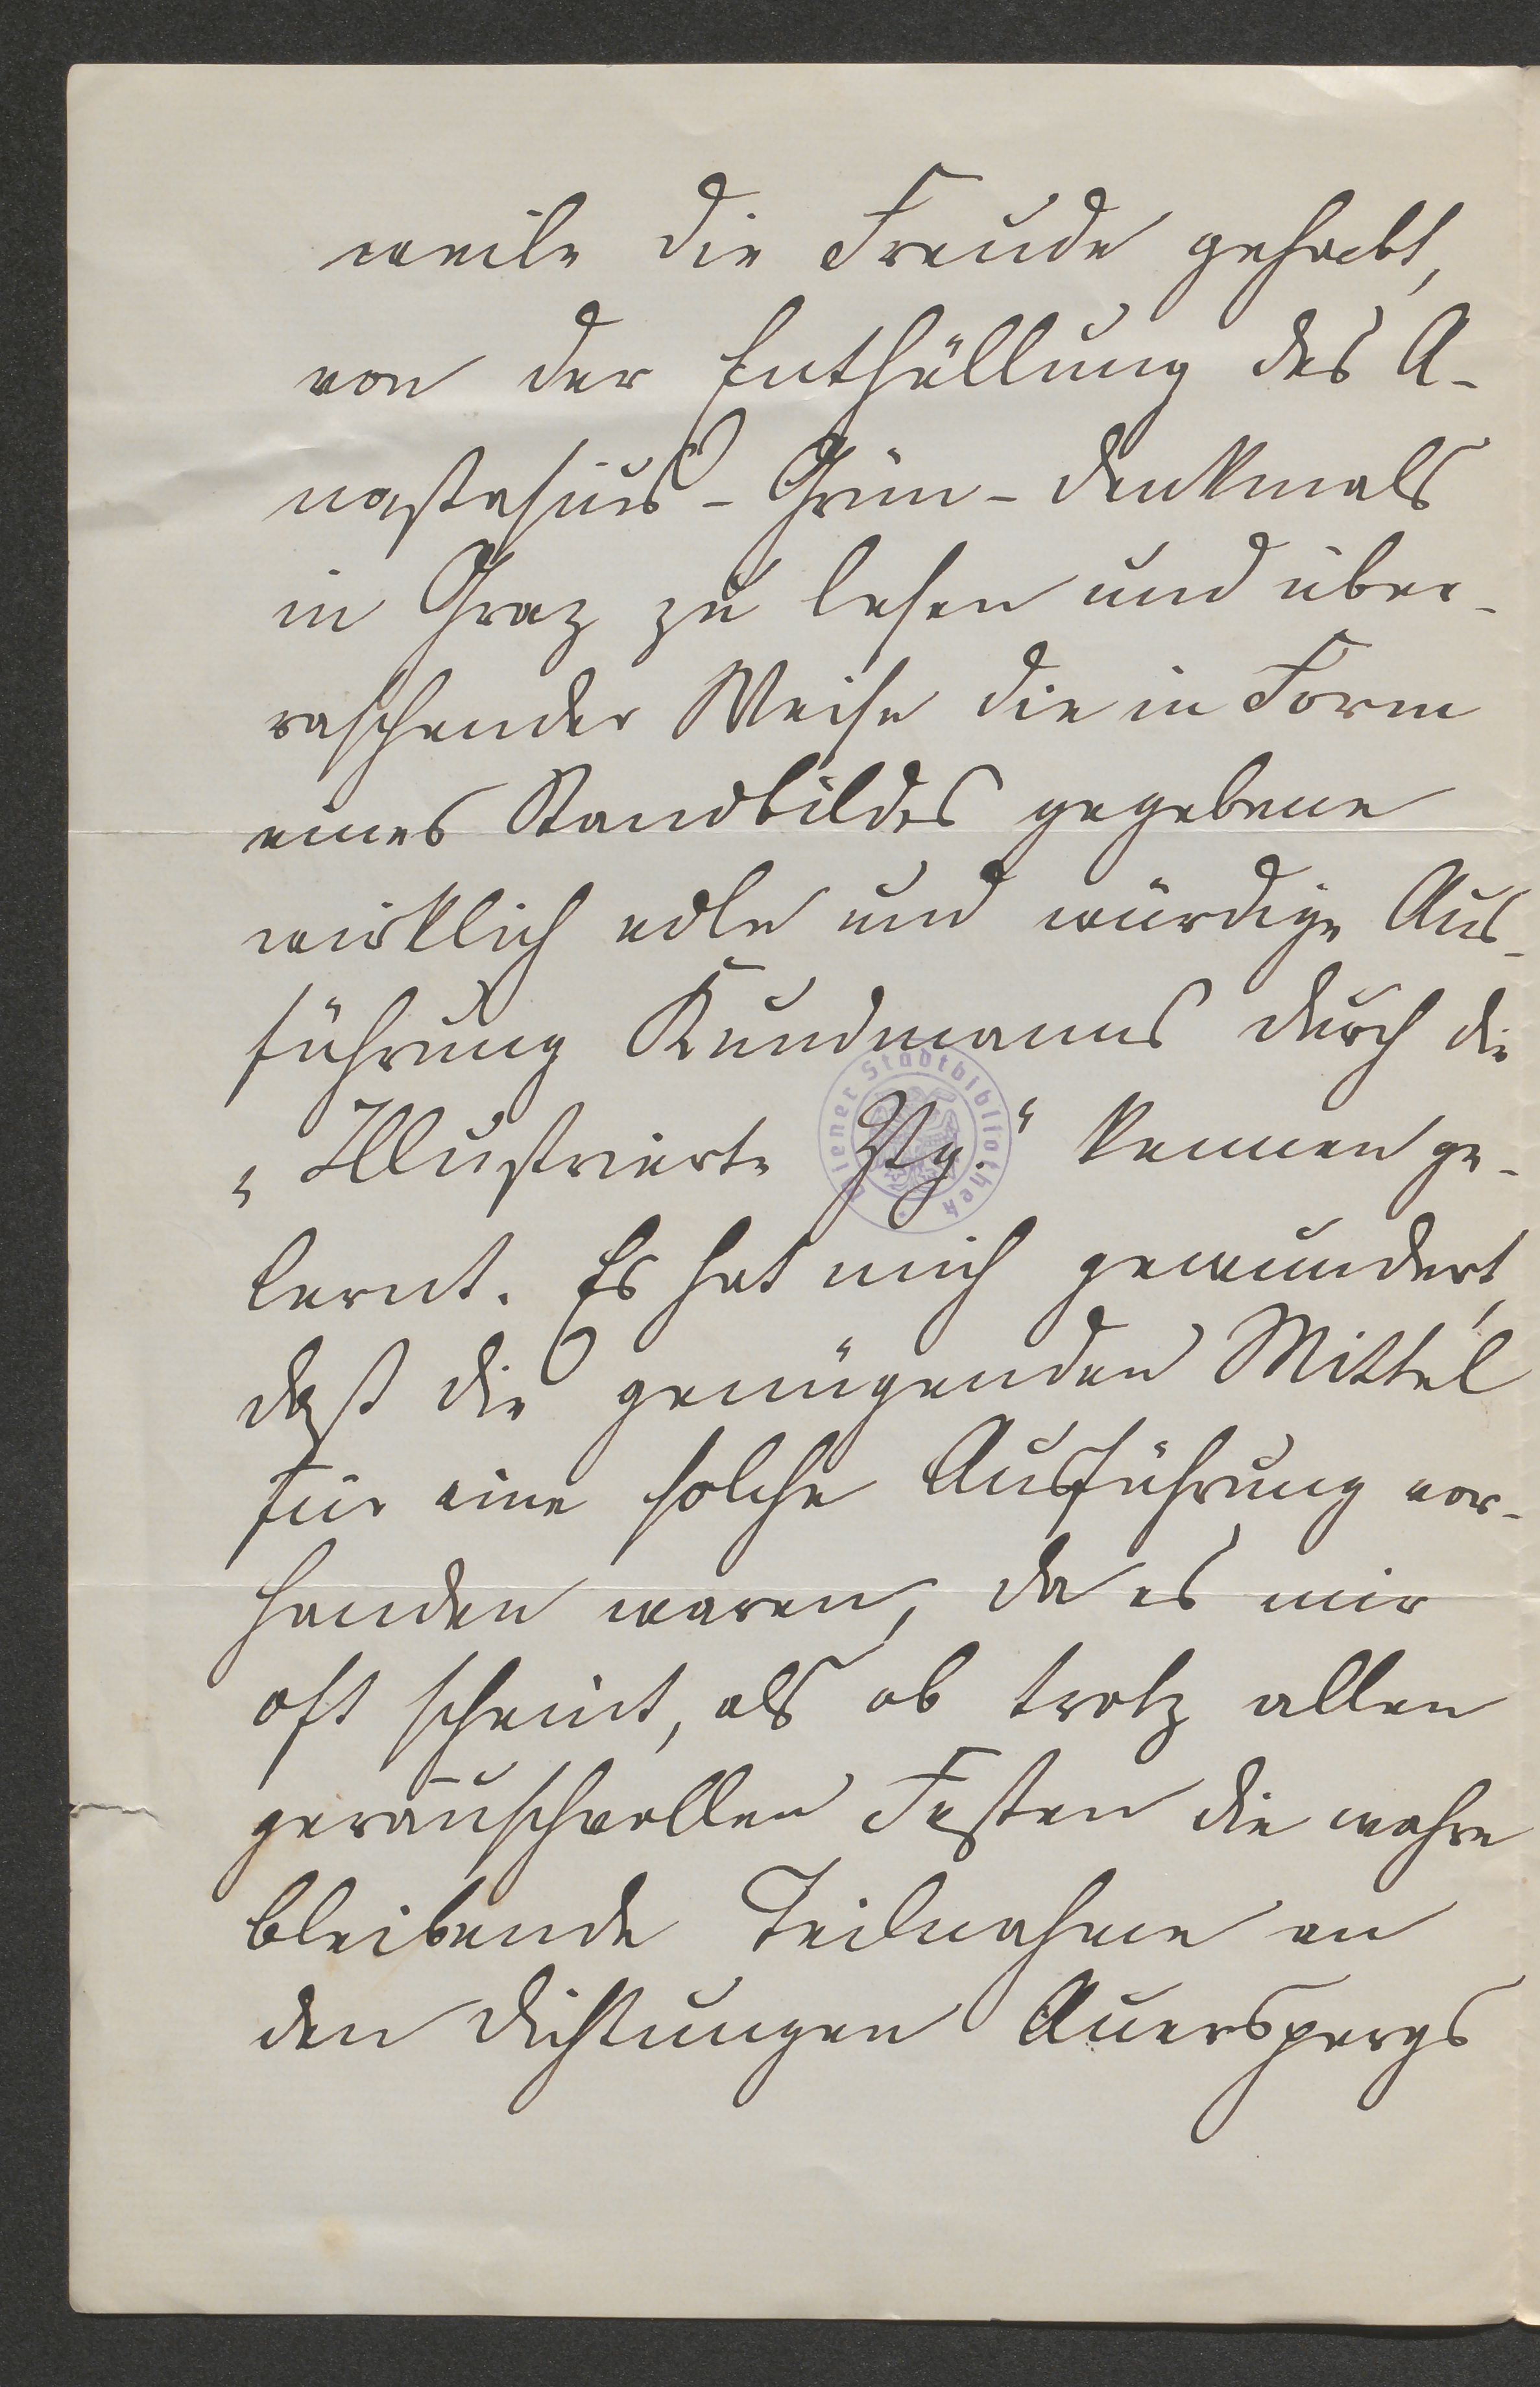 weile die Freude gehabt,
von der Enthüllung des A-
nastasius-Grün-Denkmals
in Graz zu lesen und über-
raschender Weise die in Form
eines Standbildes gegebene
wirklich edle und würdige Aus-
führung Kundmanns durch die
„Illustrierte Ztg.“ kennen ge-
lernt. Es hat mich gewundert,
daß die genügenden Mittel
für eine solche Ausführung vor-
handen waren, da es mir
oft scheint, als ob trotz allen
geräuschvollen Festen die wahre
bleibende Teilnahme an
den Dichtungen Auerspergs
Wiener Stadtbibliothek